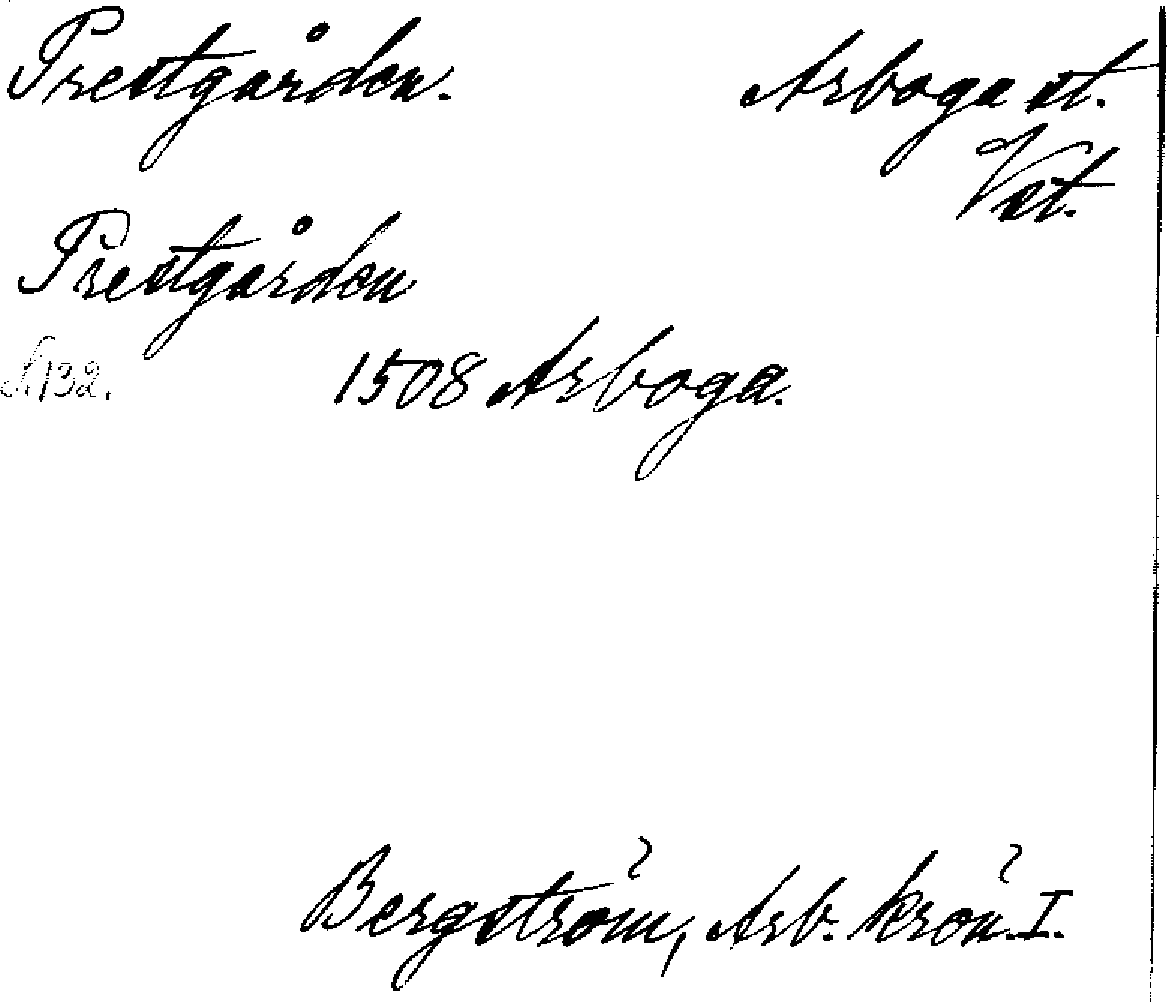 Prestgården. Arboga st.
Vst.
Prestgården
s. 132. 1508 Arboga.
Bergström, Arb. krön. I.